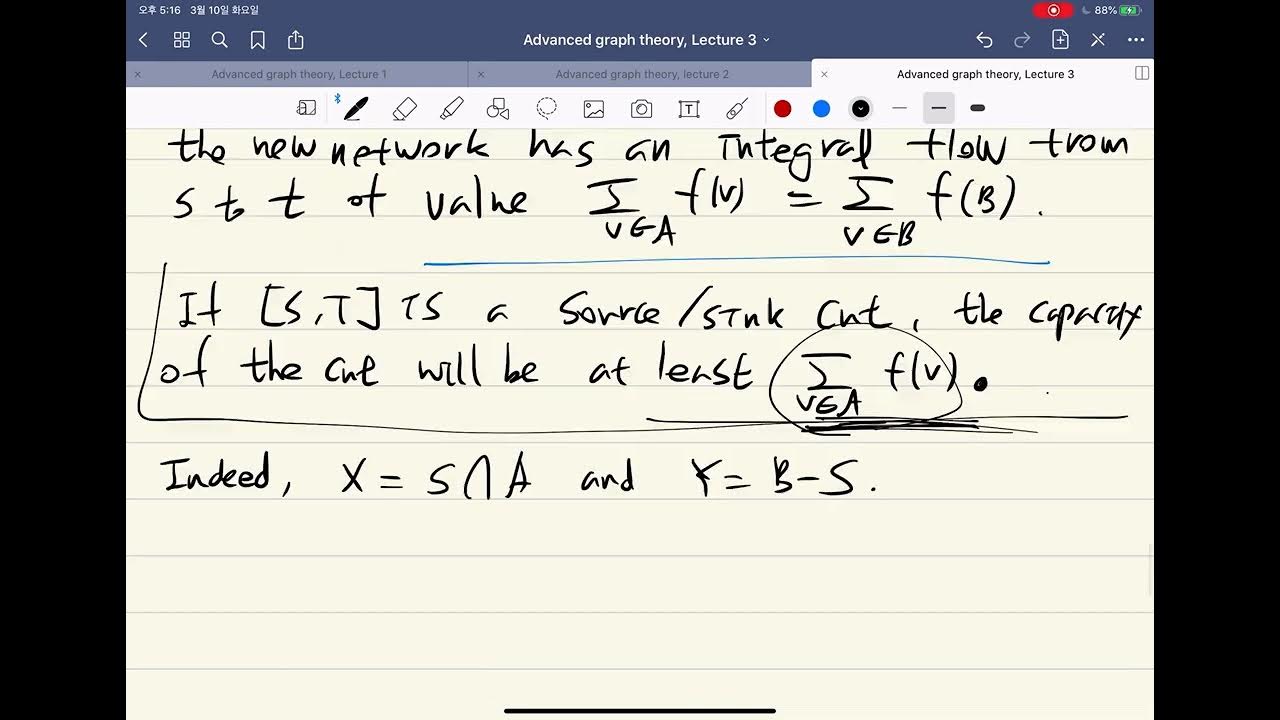 오후 5:16 3월 10일 화요일 88%
Advanced graph theory, Lecture 3
Advanced graph theory, Lecture 1 Advanced graph theory, lecture 2 Advanced graph theory, Lecture 3
the new network has an integral flow from
s to t of value ∑_{v∈A} f(v) = ∑_{v∈B} f(B).
If [S,T] is a source/sink cut, the capacity
of the cut will be at least ∑_{v∈A} f(v).
Indeed, X = S∩A and Y = B-S.